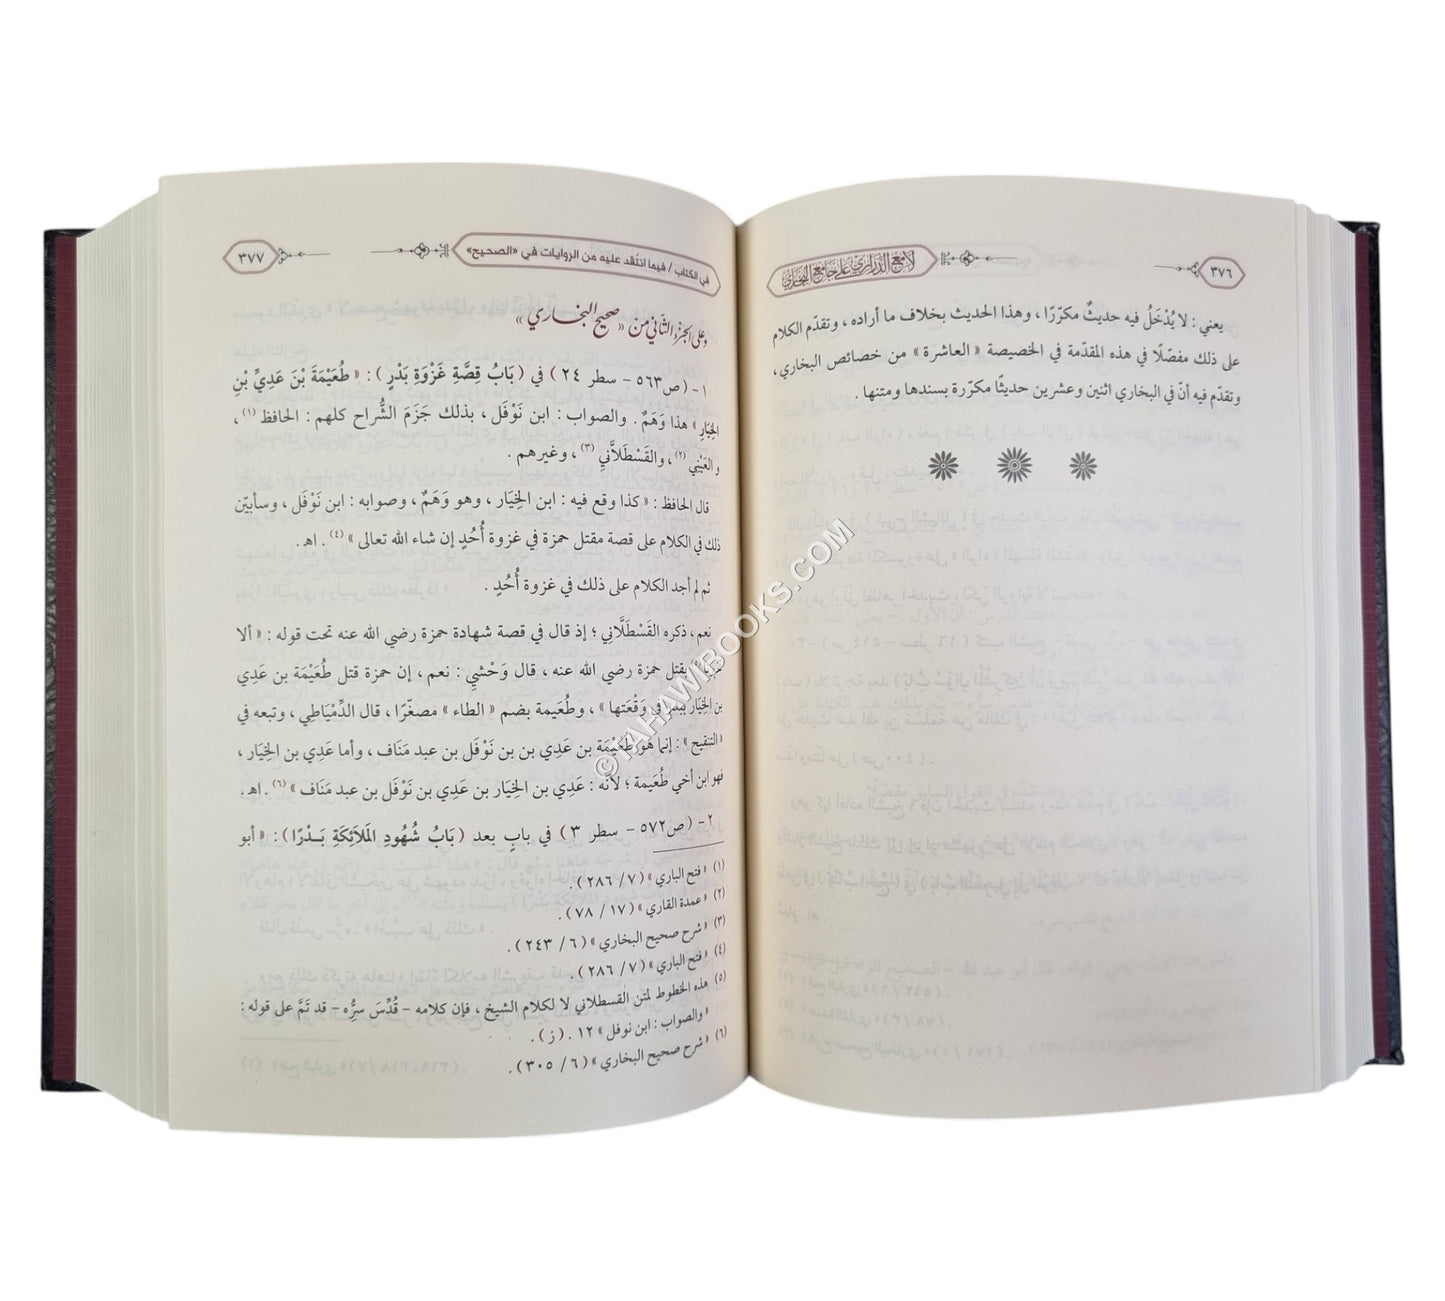 ٣٧٦
لامع الدراري على جامع البخاري
يعني : لا يُدْخَلُ فيه حديثٌ مكرّرًا ، وهذا الحديث بخلاف ما أراده ، وتقدّم الكلام
على ذلك مفصّلًا في هذه المقدّمة في الخصيصة « العاشرة » من خصائص البخاري ،
وتقدّم فيه أنّ في البخاري اثنين وعشرين حديثًا مكرّرة بسندها ومتنها .
في الكتاب / فيما انتُقد عليه من الروايات في «الصحيح»
٣٧٧
وعلى الجزء الثاني من « صحيح البخاري »
١- (ص٥٦٣ - سطر ٢٤ ) في ( بَابُ قِصَّةِ غَزْوَةِ بَدْرٍ ) : « طُعَيْمَةَ بْنَ عَدِيِّ بْنِ
الخِيَارِ » هذا وَهَمٌ . والصواب : ابن نَوْفَل ، بذلك جَزَمَ الشُّراح كلهم : الحافظ (١) ،
والعَيْني (٢) ، والقَسْطَلاَّني (٣) ، وغيرهم .
قال الحافظ : « كذا وقع فيه : ابن الخِيَار ، وهو وَهَمٌ ، وصوابه : ابن نَوْفَل ، وسأبيّن
ذلك في الكلام على قصة مقتل حمزة في غزوة أُحُدٍ إن شاء الله تعالى » (٤) . اهـ .
ثم لم أجد الكلام على ذلك في غزوة أُحُدٍ .
نعم ، ذكره القَسْطَلَّاني ؛ إذ قال في قصة شهادة حمزة رضي الله عنه تحت قوله : « ألا
بقتل حمزة رضي الله عنه ، قال وَحْشي : نعم ، إن حمزة قتل طُعَيْمَة بن عَدِي
بن الخِيَار ببدر في وَقْعَتها » ، وطُعَيمة بضم « الطاء » مصغّرًا ، قال الدِّمْيَاطي ، وتبعه في
« التنقيح » : إنما هو طُعَيْمَة بن عَدِي بن بن نَوْفَل بن عبد مَنَاف ، وأما عَدِي بن الخِيَار ،
فهو ابن أخي طُعَيمة ؛ لأنه : عَدِي بن الخِيَار بن عَدِي بن نَوْفَل بن عبد مَنَاف » (٦) . اهـ .
٢- (ص٥٧٢ - سطر ٣ ) في بابٍ بعد ( بَابُ شُهُودِ المَلاَئِكَةِ بَـدْرًا ) : « أبو
(١) « فتح الباري » (٧ / ٢٨٦ ) .
(٢) « عمدة القاري » (١٧ / ٧٨ ) .
(٣) « شرح صحيح البخاري » (٦ / ٢٤٣ ) .
(٤) « فتح الباري » (٧ / ٢٨٦ ) .
(٥) هذه الخطوط لمتن القسطلاني لا لكلام الشيخ ، فإن كلامه - قُدِّسَ سِرُّه - قد تَمَّ على قوله :
« والصواب : ابن نوفل » ١٢ . ( ز ) .
(٦) « شرح صحيح البخاري » (٦ / ٣٠٥ ) .
©TAHAWIBOOKS.COM